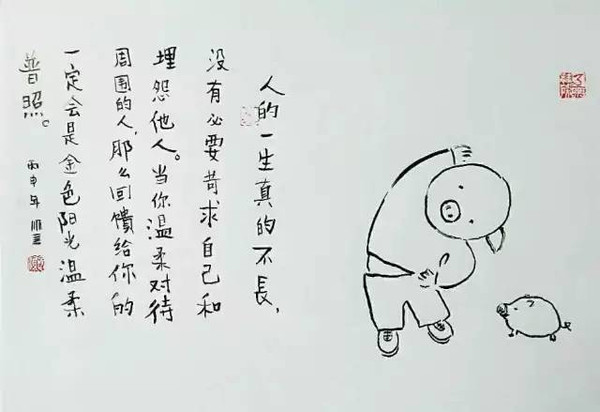 人的一生真的不長，
没有必要苛求自己和
埋怨他人。当你温柔对待
周围的人，那么回饋给你的
一定会是金色阳光温柔
普照。
丙申年